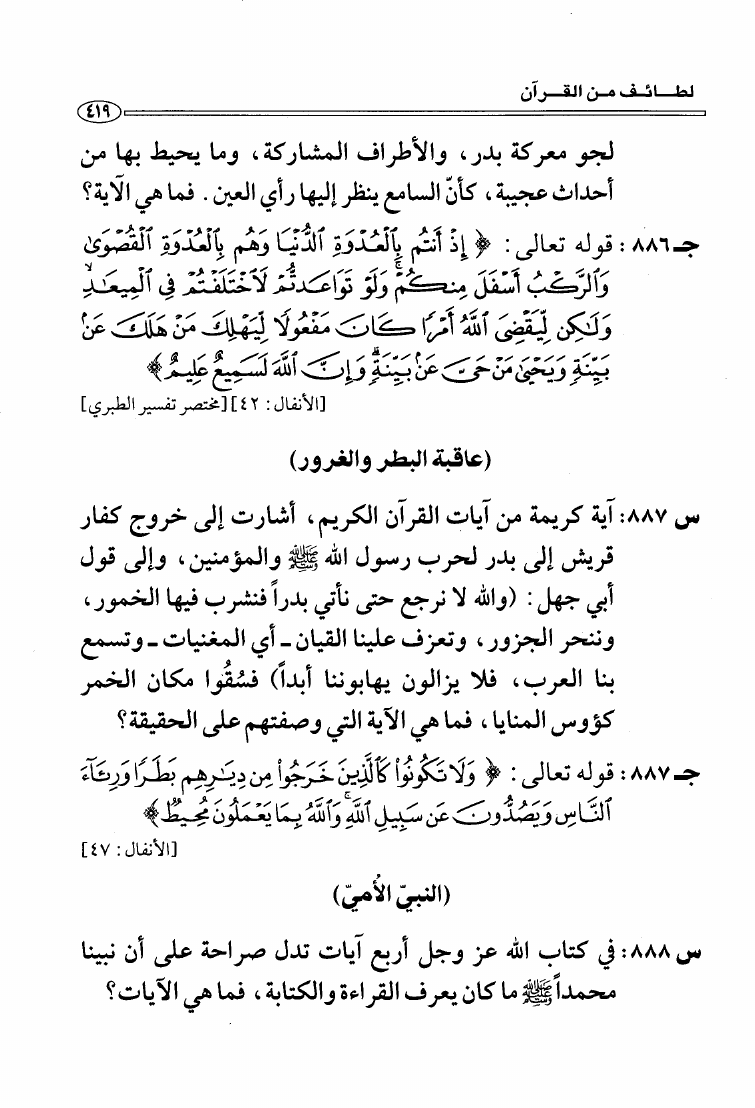 لطائف من القرآن
٤١٩
لجو معركة بدر، والأطراف المشاركة، وما يحيط بها من
أحداث عجيبة، كأنّ السامع ينظر إليها رأي العين. فما هي الآية؟
جـ٨٨٦: قوله تعالى: ﴿إِذْ أَنتُم بِٱلْعُدْوَةِ ٱلدُّنْيَا وَهُم بِٱلْعُدْوَةِ ٱلْقُصْوَىٰ
وَٱلرَّكْبُ أَسْفَلَ مِنكُمْۚ وَلَوْ تَوَاعَدتُّمْ لَٱخْتَلَفْتُمْ فِى ٱلْمِيعَـٰدِۙ
وَلَـٰكِن لِّيَقْضِىَ ٱللَّهُ أَمْرًا كَانَ مَفْعُولًا لِّيَهْلِكَ مَنْ هَلَكَ عَنۢ
بَيِّنَةٍ وَيَحْيَىٰ مَنْ حَىَّ عَنۢ بَيِّنَةٍۗ وَإِنَّ ٱللَّهَ لَسَمِيعٌ عَلِيمٌ﴾
[الأنفال: ٤٢] [مختصر تفسير الطبري]
(عاقبة البطر والغرور)
س ٨٨٧: آية كريمة من آيات القرآن الكريم، أشارت إلى خروج كفار
قريش إلى بدر لحرب رسول الله ﷺ والمؤمنين، وإلى قول
أبي جهل: (والله لا نرجع حتى نأتي بدراً فنشرب فيها الخمور،
وننحر الجزور، وتعزف علينا القيان ـ أي المغنيات ـ وتسمع
بنا العرب، فلا يزالون يهابوننا أبداً) فسُقُوا مكان الخمر
كؤوس المنايا، فما هي الآية التي وصفتهم على الحقيقة؟
جـ٨٨٧: قوله تعالى: ﴿وَلَا تَكُونُوا۟ كَٱلَّذِينَ خَرَجُوا۟ مِن دِيَـٰرِهِم بَطَرًا وَرِئَآءَ
ٱلنَّاسِ وَيَصُدُّونَ عَن سَبِيلِ ٱللَّهِۚ وَٱللَّهُ بِمَا يَعْمَلُونَ مُحِيطٌ﴾
[الأنفال: ٤٧]
(النبيّ الأُميّ)
س ٨٨٨: في كتاب الله عز وجل أربع آيات تدل صراحة على أن نبينا
محمداً ﷺ ما كان يعرف القراءة والكتابة، فما هي الآيات؟